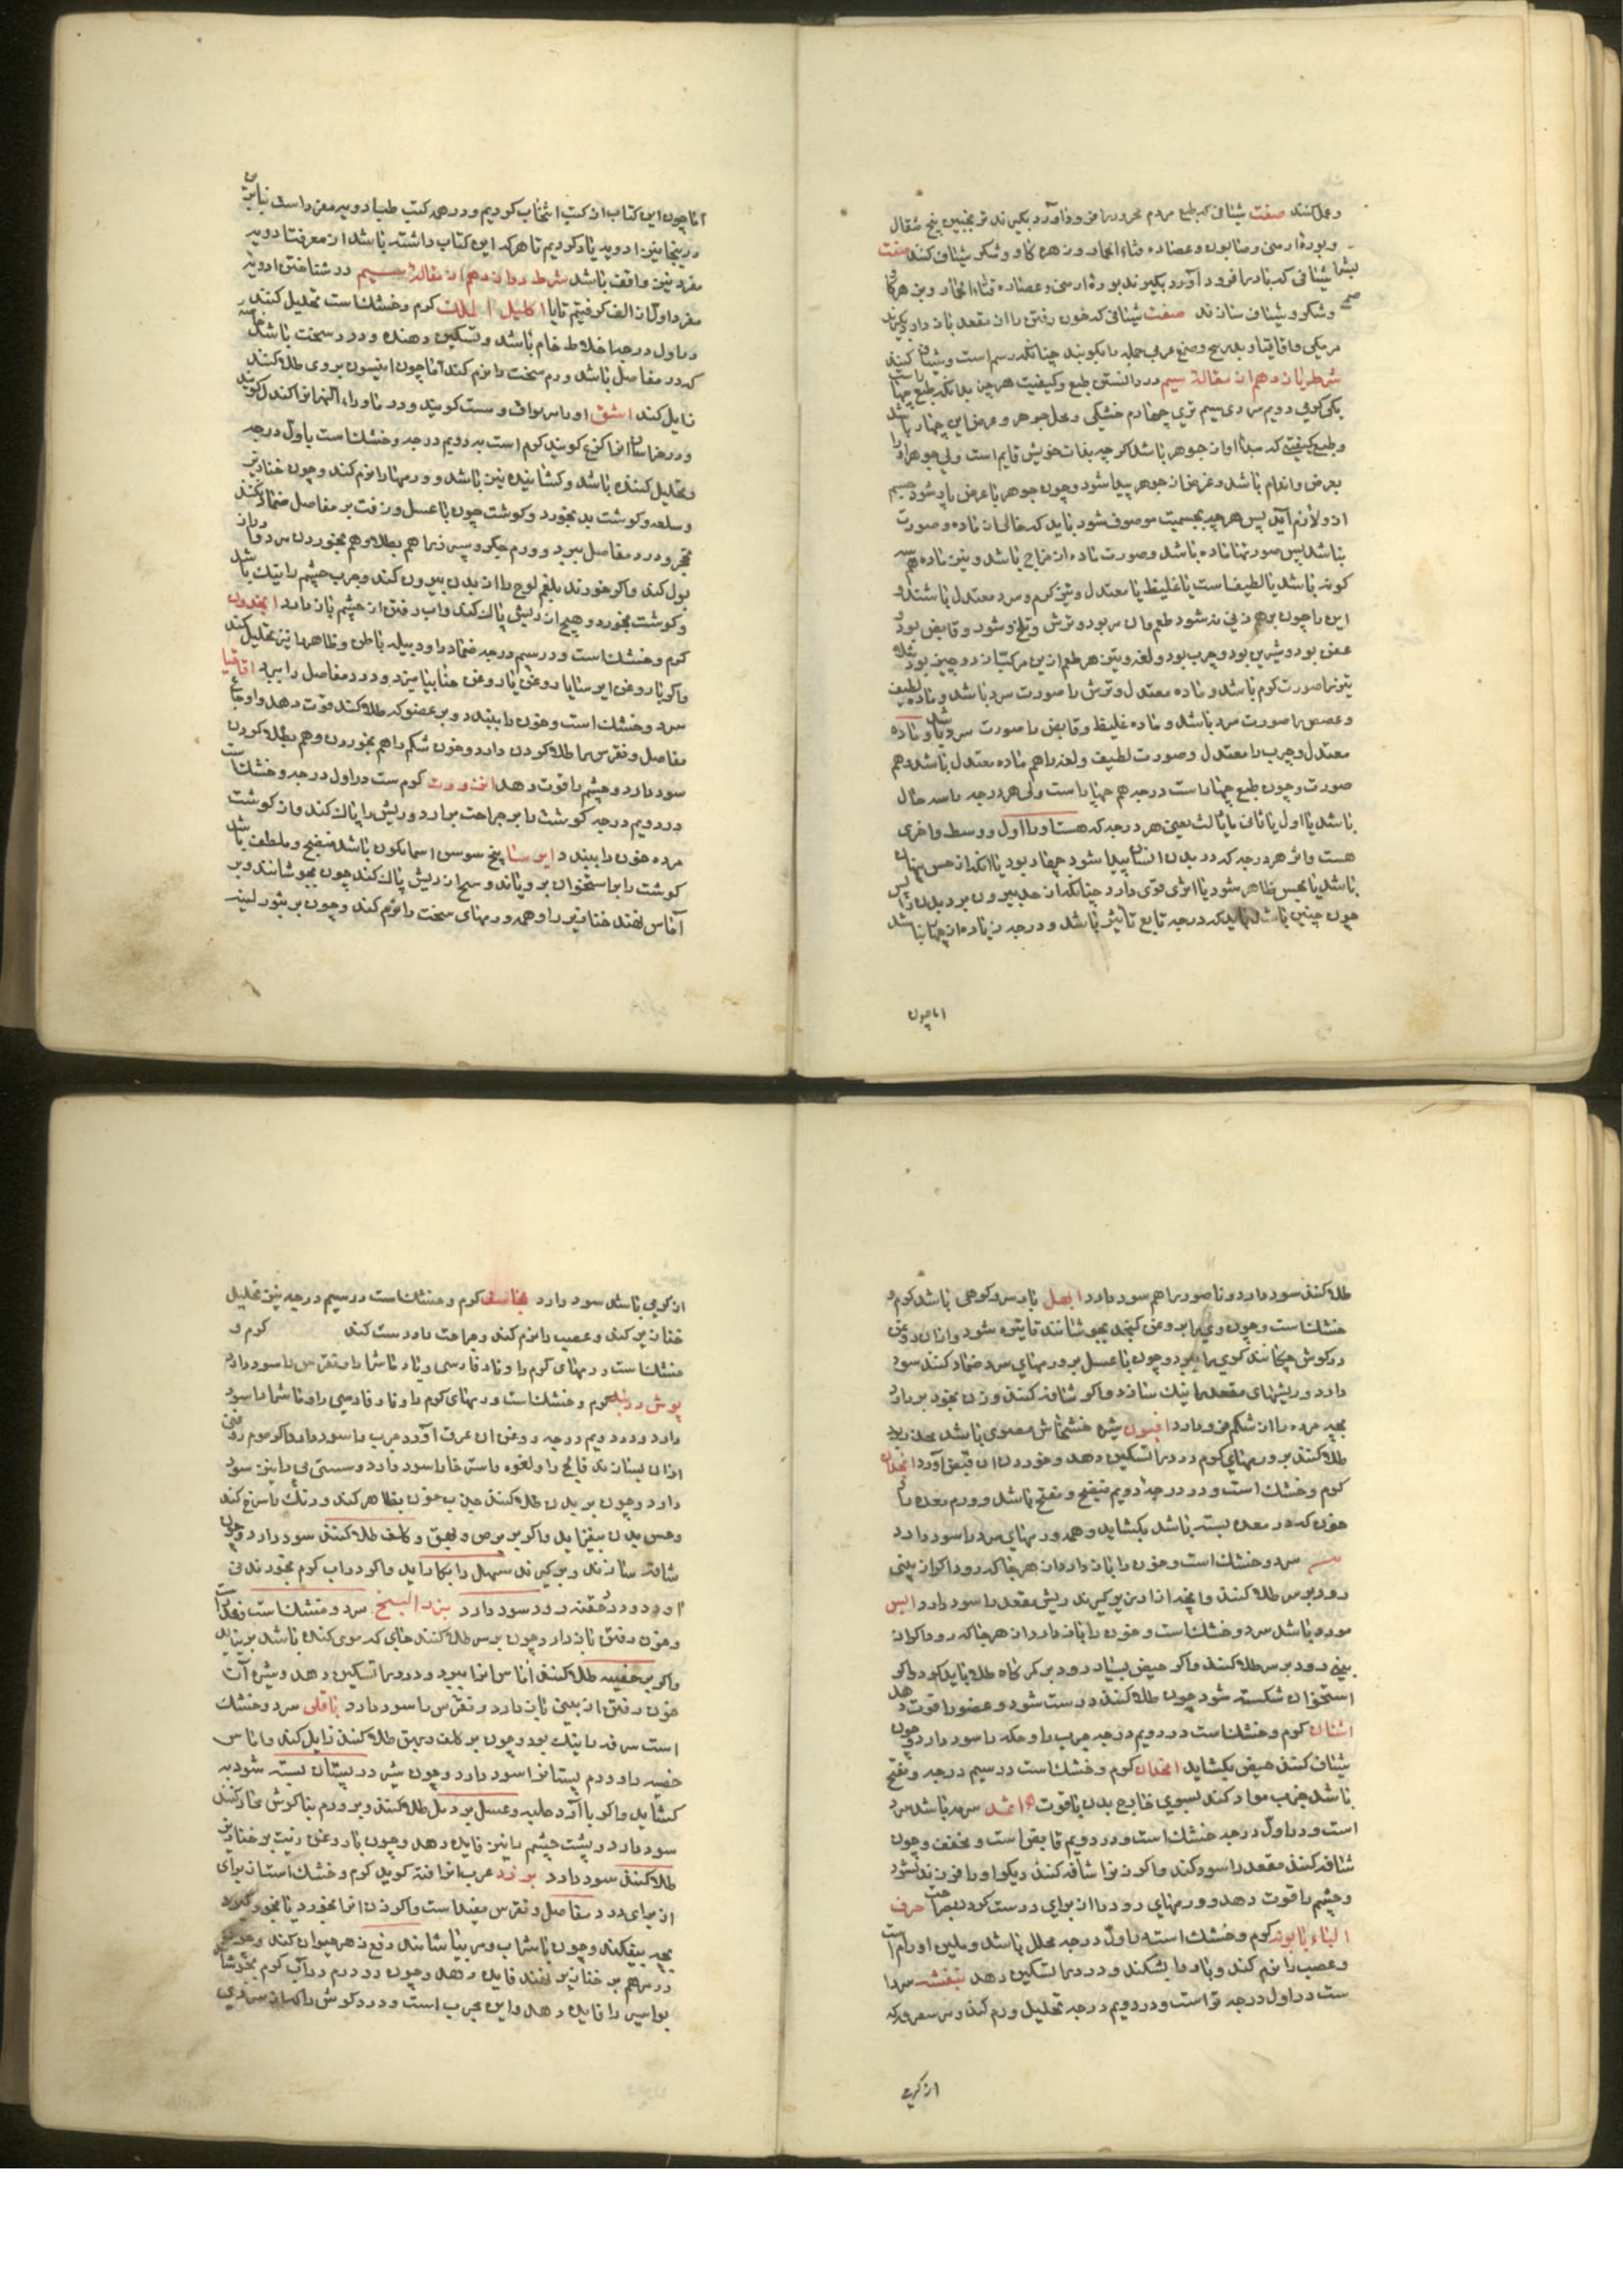 وعمل کنند صفت شیافی که طبع مردم محرور را فرود آورد بکیرند ترنجبین پنج مثقال
وبوره ارمنی وصابون وعصاره قثاء الحمار وزهره کاو وشکر شیاف کنند صفت
شیافی که باد را فرود آورد بکیرند بوره ارمنی وعصاره قثاء الحمار
وشکر وشیاف سازند صفت شیافی که خون رفتن را از مقعد باز دارد بکیرند
مرمکی واقاقیا وصمغ عربی جمله را بکوبند چنانکه رسم است وشیاف کنند
شرط یازدهم از مقاله سیم در دانستن طبع وکیفیت هر چیز بدانکه طبع چهار است
یکی کرمی دویم سردی سیم تری چهارم خشکی ومحل جوهر وعرض این چهار باشد
وطبع کیفیتی که مبدا او از جوهر باشد اکر چه بذات خویش قایم است ولی جوهر او را
بعرض واندام باشد وعرض از جوهر پیدا شود وچون جوهر با عرض یار شود جسم
ازو لازم آید پس هر چه بجسمیت موصوف شود باید که خالی از ماده وصورت
نباشد پس صورتها ماده باشد وصورت ماده از مزاج باشد ونیز ماده هم سه
کونه باشد یا لطیف است یا غلیظ یا معتدل ونیز کرم وسرد معتدل باشند
این را چون بر هم زنی نه شود طعم وان بود وترش وتلخ وشور وقابض بود
عفص بود وشیرین بود وچرب بود ولغز ونیز هر طعم ازین مرکبات از دو چیز بود
تیز را صورت کرم باشد وماده معتدل وترش را صورت سرد باشد وماده لطیف
وعفص را صورت سرد باشد وماده غلیظ وقابض را صورت سرد باشد وماده
معتدل وچرب را معتدل وصورت لطیف ولغز را هم ماده معتدل باشد وهم
صورت وچون طبع چهار است درجه هم چهار است ولی هر درجه را سه حال
باشد یا اول یا ثانی یا ثالث یعنی هر درجه که هست او را اول ووسط واخری
هست واثر هر درجه که در بدن انسان پیدا شود چهار بود یا انکه از حس پنهان
باشد یا بحس ظاهر شود یا اثری قوی دارد چنانکه از حد بیرون برد بدن را پس
چون چنین باشد باید که درجه تابع تاثیر باشد ودرجه زیاده از چهار نباشد
اما چون
اما چون این کتاب از کتب انتخاب کردیم ودر همه کتب طب ادویه مفرد است بنابرین
در ینجا نیز ادویه یاد کردیم تا هر که این کتاب داشته باشد از معرفت ادویه
مفرد نیز واقف باشد شرط دوازدهم از مقاله سیم در شناختن ادویه
مفرد اول از الف کرفتیم تا یا اکلیل الملک کرم وخشک است تحلیل کننده
در اول درجه اخلاط خام باشد وتسکین دهنده ودرد سخت باشد
که در مفاصل باشد ورم سخت را نرم کند اما چون انیسون بروی طلا کنند
زایل کند اشق او را بیونانی وست کویند ودر ماوراء النهر انرا کندل کویند
ودر خراسان انرا کزغ کویند کرم است بدرویم درجه وخشک است باول درجه
وتحلیل کننده باشد وکشاینده نیز باشد وورمها را نرم کند وچون خنازیر
وسلعه وکوشت بد بخورد وکوشت چون با عسل وزفت بر مفاصل ضماد کنند
تحجر ودرد مفاصل ببرد وورم جکر وسپرز را هم بطلا وهم بخوردن سود دارد
بول کند واکر خورند بلغم لوج را از بدن بیرون کند وجرب چشم را نیک باشد
وکوشت بخورد وهیچ از ریش پاک کند واب رفتن از چشم باز دارد انجدان
کرم وخشک است ودر سیم درجه ضماد او دبیله باطن وظاهر را نیز تحلیل کند
واکر با روغن ایرسا یا روغن یا روغن حنا بیامیزند ودرد مفاصل را ببرد اقاقیا
سرد وخشک است وخون را ببندد وبر عضو که طلا کنند قوت دهد واوجاع
مفاصل ونقرس را طلا کردن دارد وخون شکم را هم بخوردن وهم بطلا کردن
سود دارد وچشم را قوت دهد انزروت کرم ست در اول درجه وخشک است
در دویم درجه کوشت را بر جراحت برارد وریش را پاک کند واز کوشت
مرده خون را ببندد ایرسا بیخ سوسن اسمانکون باشد منضج وملطف باشد
کوشت را بر استخوان برویاند وسح از ریش پاک کند چون بجوشانند وبر
آماس نهند خنازیر را وهمه ورمهای سخت را نرم کند وچون بر بثور لبنیه
طلا کنند سود دارد وناصور را هم سود دارد ابهل بار سرو کوهی باشد کرم و
خشک است وچون وی را بر روغن کنجد بجوشانند تا تیره شود وازان روغن
در کوش چکانند کری را ببرد وچون با عسل بر ورمهای سرد ضماد کنند سود
دارد وریشهای مقعد را نیک سازد واکر شافه کنند وزن بخود بردارد
بچه مرده را از شکم فرود ارد افیون شیره خشخاش مصری باشد مخدر بود
طلا کنند بر ورمهای کرم درد را تسکین دهد وخوردن ان قبض آورد انجدان
کرم وخشک است ودر درجه دویم منضج ومفتح باشد وورم معده را
خون که در معده بسته باشد بکشاید وهمه ورمهای سرد را سود دارد
سرد وخشک است وخون را باز دارد از هر جا که رود اکر از بینی
رود بر سر طلا کنند وانچه از ادرین بر کیرند ریش مقعد را سود دارد اس
مورد باشد سرد وخشک است وخون را باز دارد از هر جا که رود اکر از
بینی رود بر سر طلا کنند واکر حیض بسیار رود بر کمر کاه طلا باید کرد واکر
استخوان شکسته شود چون طلا کنند درست شود وعضو را قوت دهد
اشنان کرم وخشک است در دویم درجه جرب را وحکه را سود دارد وچون
شیاف کنند حیض بکشاید انجدان کرم وخشک است در سیم درجه ومفتح
باشد جذب مواد کند بسوی خارج بدن باقوت اثمد سرمه باشد سرد
است ودر اول درجه خشک است ودر دویم قابض است ومخفف وچون
شافه کنند مقعد را سود کند واکر زن ازا شافه کند دیکر او را فرزند نشود
وچشم را قوت دهد وورمهای رود را از برای درست کردن جراحت حرف
الباء بابونه کرم وخشک است باول درجه محلل باشد وملین اورام است
وعصب را نرم کند وبادها بشکند ودرد را تسکین دهد بنفشه سرد
ست در اول درجه تر است ودر دویم درجه تحلیل ورم کند ودر سعر وکه
از کرمی
از کرمی باشد سود دارد کرم وخشک است در سیم درجه نیز تحلیل
خنازیر کند وعصب را نرم کند وجراحت را درست کند کرم و
خشک است ورمهای کرم را وناد فارسی ونار ماشرا ونقرس را سود دارد
بوش دربندی کرم وخشک است ورمهای کرم را ونار فارسی را وماشرا را سود
دارد ودر دویم درجه وروغن ان عرق آورد جرب را سود دارد واکر موم روغنی
ازان بسازند فالج را ولقوه را سود دارد وسستی پی را نیز سود
دارد وچون بر بدن طلا کنند جذب خون بظاهر کند ورنک را سرخ کند
وحس بدن بیفزاید واکر بر برص وبهق وکلف طلا کنند سود دارد وچون
شافه سازند وبر کیرند مسهل را بکار اید واکر در اب کرم بخورند قی
اورد ودر حقنه درد سود دارد بزر البنج سرد وخشک است ومخدر است
وخون رفتن باز دارد وچون بر سر طلا کنند جای که موی کنده باشد برنیاید
واکر بر خصیه طلا کنند آماس انرا ببرد ودرد را تسکین دهد وشیره آن
خون رفتن از بینی باز دارد ونقرس را سود دارد باقلی سرد وخشک
است سرفه را نیک بود وچون بر کلف وبهق طلا کنند زایل کند واماس
خصیه را وورم پستانرا سود دارد وچون شیر در پستان بسته شود به
کشاید واکر با آرد حلبه وعسل بر دمل طلا کنند وبر ورم بناکوش ضماد کنند
سود دارد وپشت چشم را نیز فایده دهد وچون با روغن زیت بر خنازیر
طلا کنند سود دارد برزد عرب انرا قنه کوید کرم وخشک است از برای
از برای درد مفاصل ونقرس مفید است واکر زن انرا بخورد یا بخود کیرد
بچه بیفکند وچون با شراب ومر بیاشامند دفع زهر حیوان کند
در مرهم بر خنازیر نهند فایده دهد وچون دو درم در آب کرم بجوشانند
بواسیر را فایده دهد واین مجرب است ودرد کوش را که از سردی